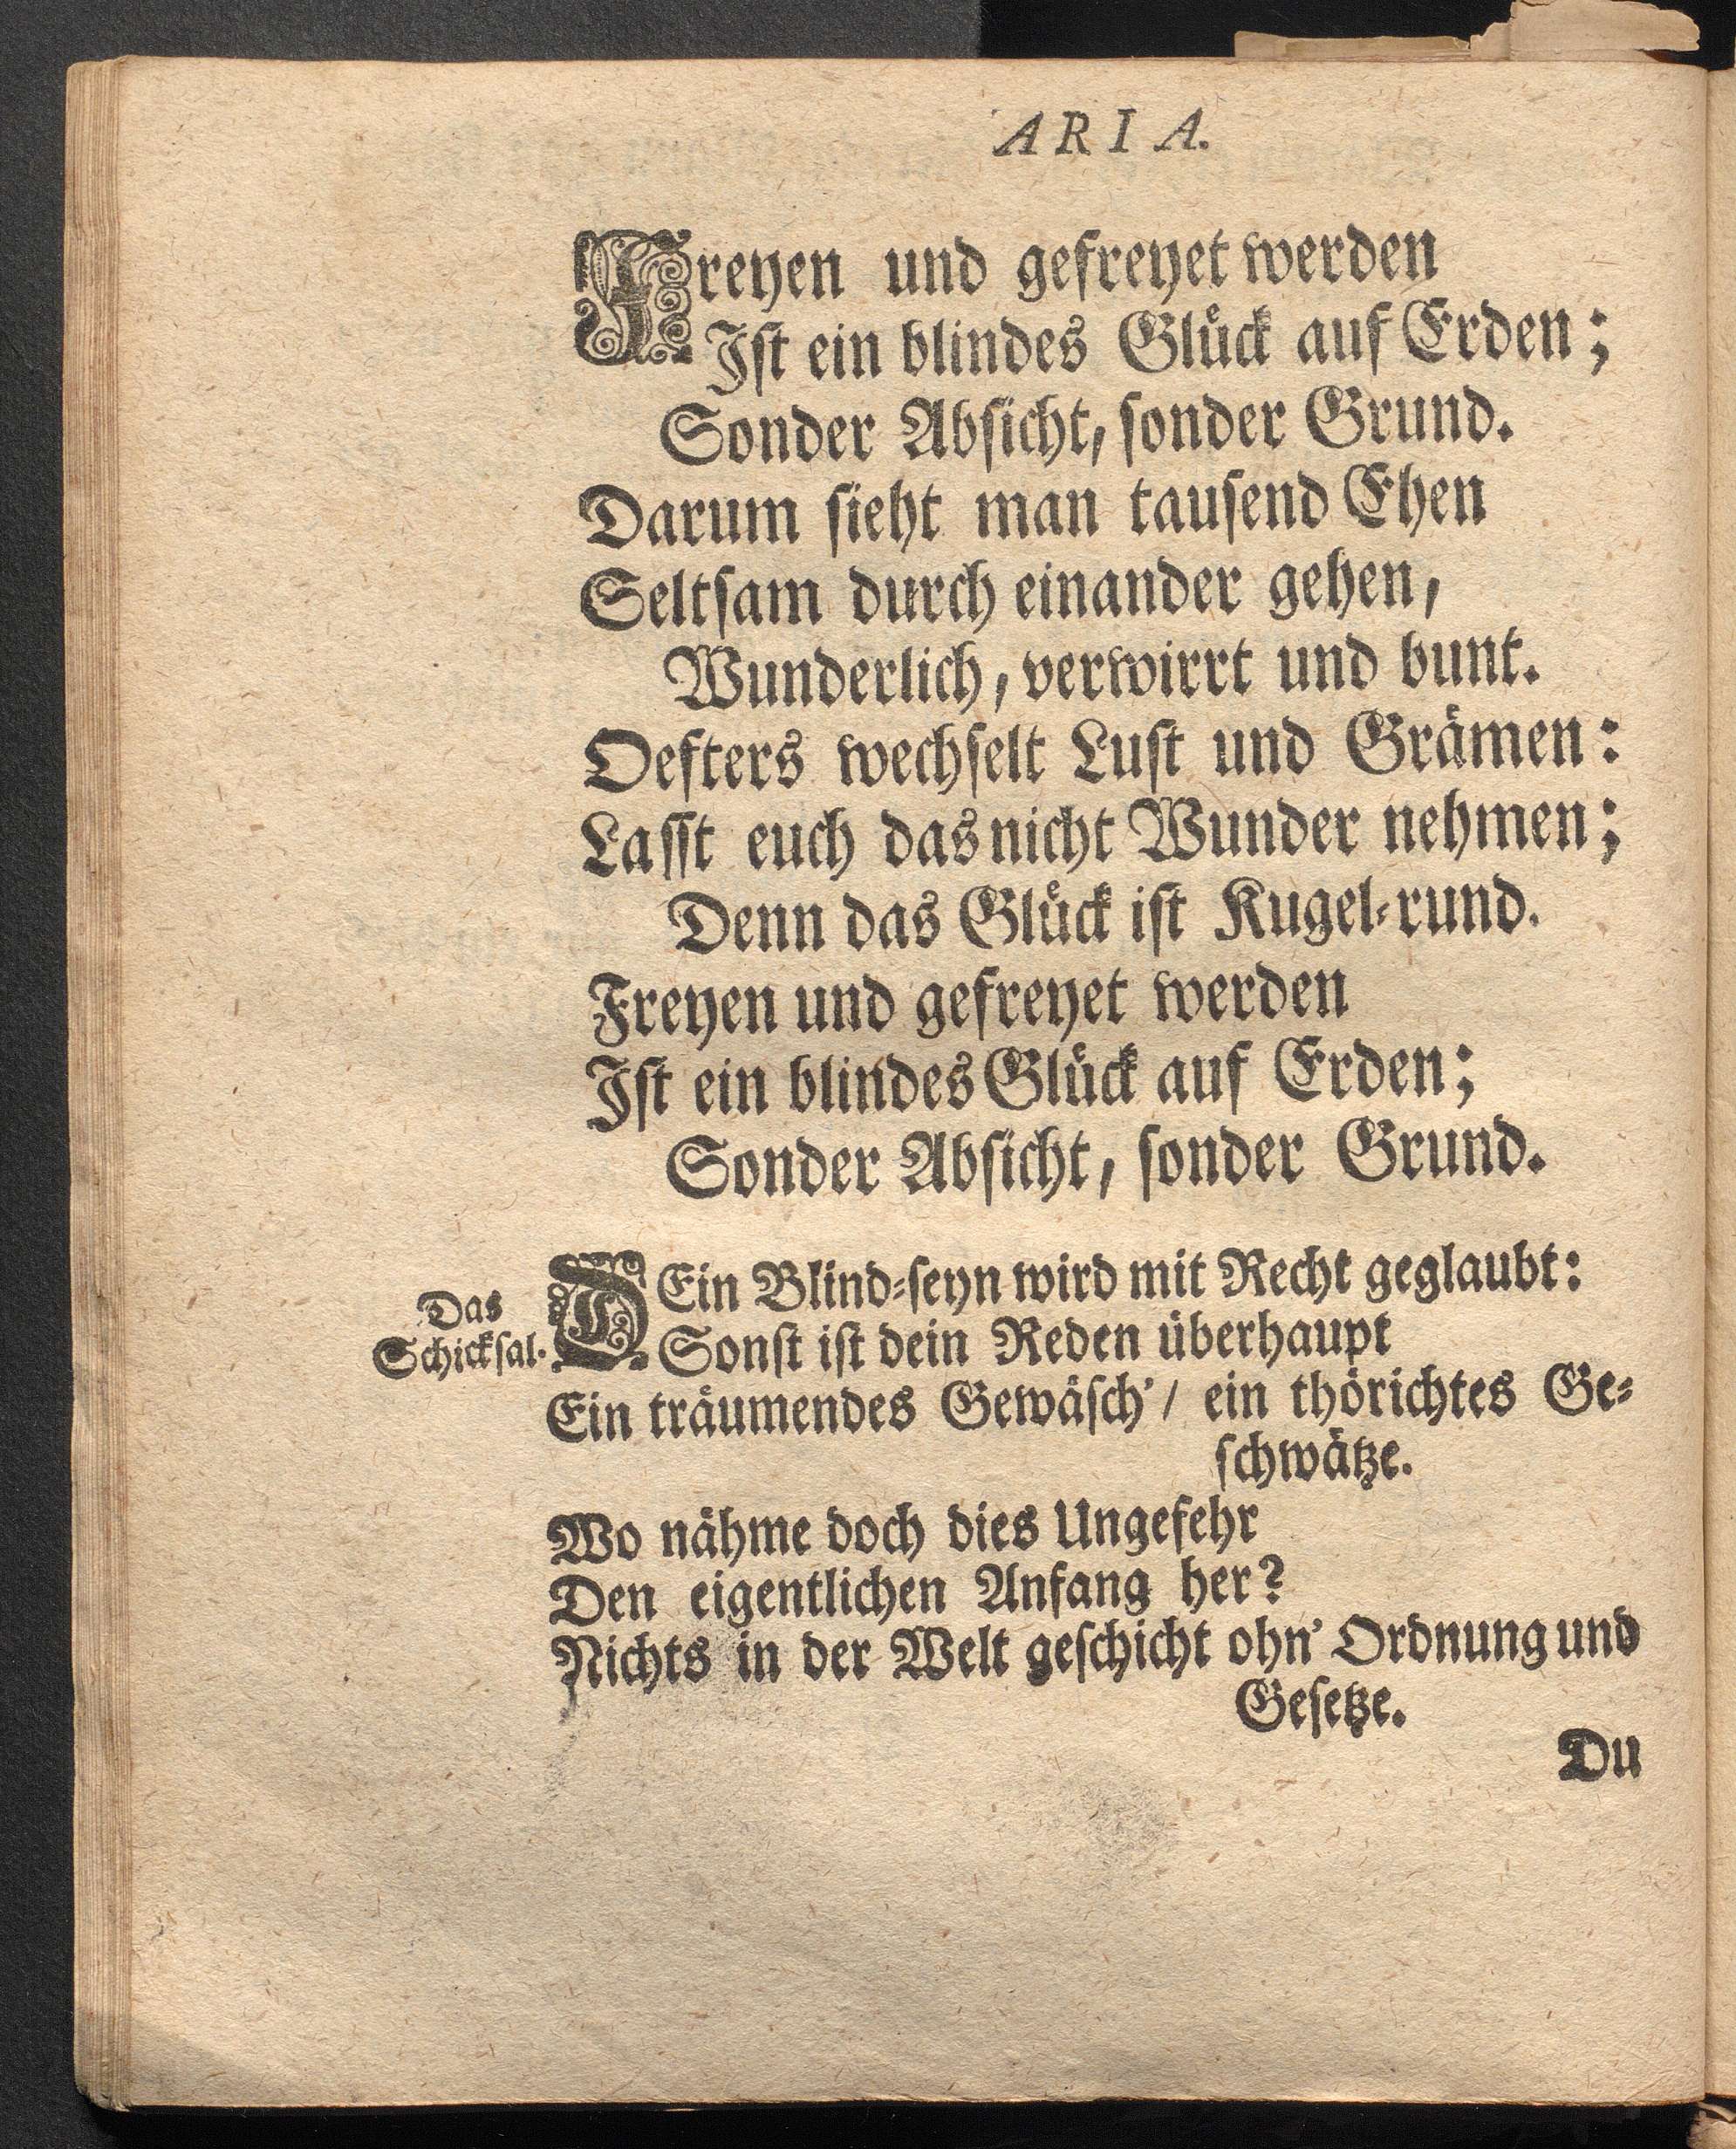 ARIA.
Freyen und gefreyet werden
Ist ein blindes Glück auf Erden;
Sonder Absicht, sonder Grund.
Darum sieht man tausend Ehen
Seltsam durch einander gehen,
Wunderlich, verwirrt und bunt.
Oefters wechselt Lust und Grämen:
Lasst euch das nicht Wunder nehmen;
Denn das Glück ist Kugel-rund.
Freyen und gefreyet werden
Ist ein blindes Glück auf Erden;
Sonder Absicht, sonder Grund.
Das
Schicksal.
DEin Blind-seyn wird mit Recht geglaubt:
Sonst ist dein Reden überhaupt
Ein träumendes Gewäsch' / ein thörichtes Ge-
schwätze.
Wo nähme doch dies Ungefehr
Den eigentlichen Anfang her?
Nichts in der Welt geschicht ohn' Ordnung und
Gesetze.
Du